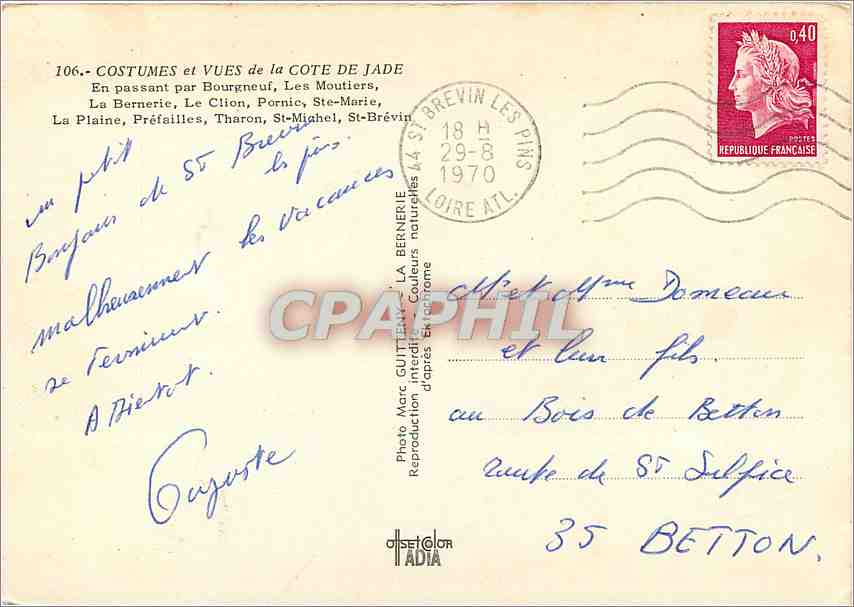 106.- COSTUMES et VUES de la COTE DE JADE
En passant par Bourgneuf, Les Moutiers,
La Bernerie, Le Clion, Pornic, Ste-Marie,
La Plaine, Préfailles, Tharon, St-Michel, St-Brévin
un petit
Bonjour de St Brevin
les pins.
malheureusement les vacances
se terminent.
A Bientot.
Auguste
44 ST BREVIN LES PINS
18 H
29-8
1970
LOIRE ATL.
0,40
POSTES
REPUBLIQUE FRANÇAISE
Photo Marc GUITTENY - LA BERNERIE
Reproduction interdite - Couleurs naturelles
d'après Ektachrome
CPAPHIL
Mr et Mme Domeau
et leur fils.
au Bois de Betton
route de St Sulpice
35 BETTON.
OFFSETCOLOR
IADIA